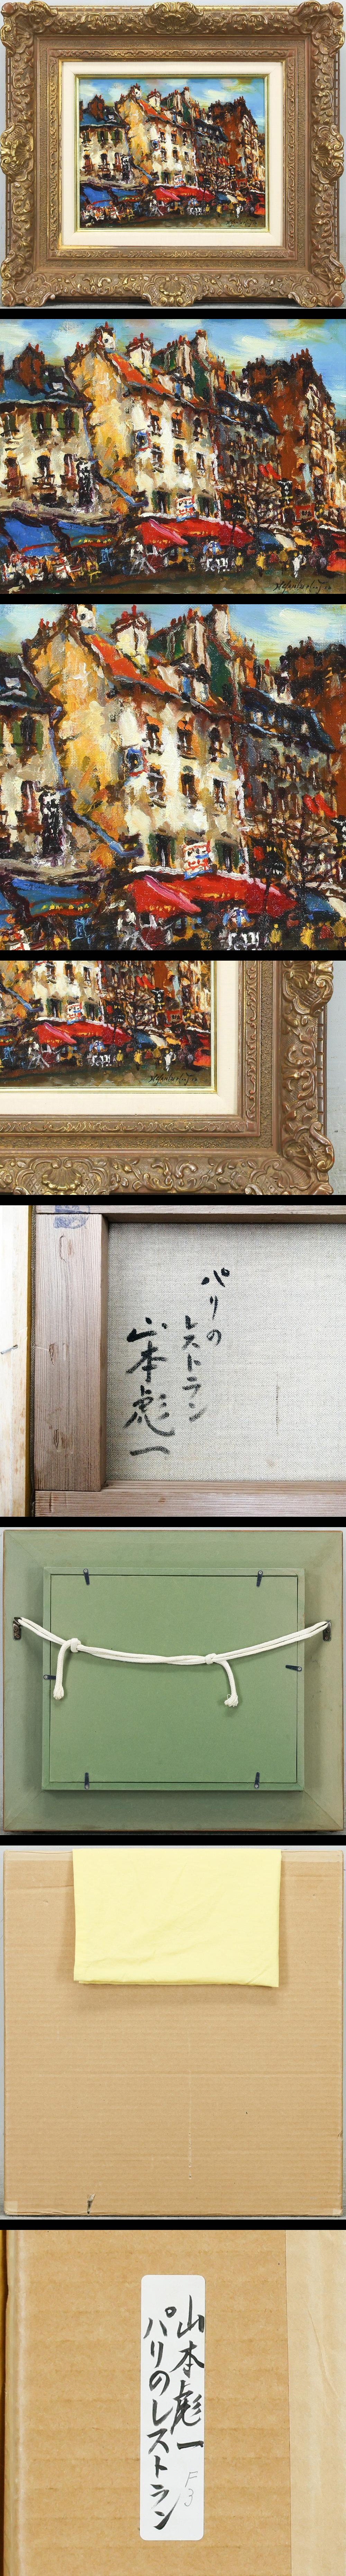 パリの
レストラン
山本彪一
山本彪一
F3
パリのレストラン